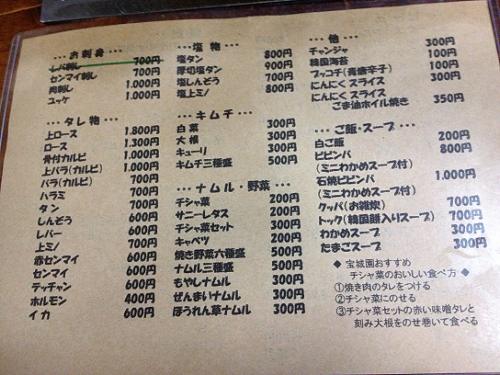 … お刺身 …
レバ刺し 700円
センマイ刺し 700円
肉刺し 1.000円
ユッケ 1.000円
… タレ物 …
上ロース 1.800円
ロース 1.300円
骨付カルビ 1.000円
上バラ(カルビ) 1.000円
バラ(カルビ) 700円
ハラミ 700円
タン 700円
しんぞう 600円
レバー 600円
上ミノ 700円
赤センマイ 600円
センマイ 600円
テッチャン 600円
ホルモン 400円
イカ 600円
… 塩物 …
塩タン 800円
厚切塩タン 900円
塩しんぞう 700円
塩上ミノ 800円
… キムチ …
白菜 300円
大根 300円
キューリ 300円
キムチ三種盛 500円
… ナムル・野菜 …
チシャ菜 200円
サニーレタス 200円
チシャ菜セット 300円
キャベツ 200円
焼き野菜六種盛 500円
ナムル三種盛 500円
もやしナムル 300円
ぜんまいナムル 300円
ほうれん草ナムル 300円
… 他 …
チャンジャ 300円
韓国海苔 100円
プッコチ(青唐辛子) 100円
にんにくスライス 300円
にんにくスライス
ごま油ホイル焼き 350円
… ご飯・スープ …
白ご飯 200円
ビビンバ 800円
(ミニわかめスープ付)
石焼ビビンバ 1.000円
(ミニわかめスープ付)
クッパ(お雑炊) 700円
トック(韓国餅入りスープ) 700円
わかめスープ 300円
たまごスープ 300円
◆ 宝城園おすすめ
チシャ菜のおいしい食べ方 ◆
①焼き肉のタレをつける
②チシャ菜にのせる
③チシャ菜セットの赤い味噌タレと
刻み大根をのせ巻いて食べる